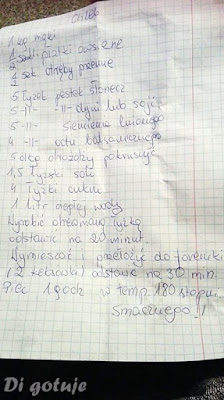 Chleb
1 kg mąki
1 szkl. płatki owsiane
1 szk. otręby pszenne
5 łyżek pestek słonecz.
5 -11- -11- dyni lub soji
5 -11- siemienia lnianego
4 -11- octu balsamicznego
5 dkg drożdży pokruszyć
1,5 łyżki soli
4 łyżki cukru
1 litr ciepłej wody
Wyrobić drewnianą łyżką
odstawić na 20 minut.
Wymieszać i przełożyć do foremki
(2 keksówki) odstawić na 30 min.
Piec 1 godz w temp. 180 stopni
Smacznego!!
Di gotuje